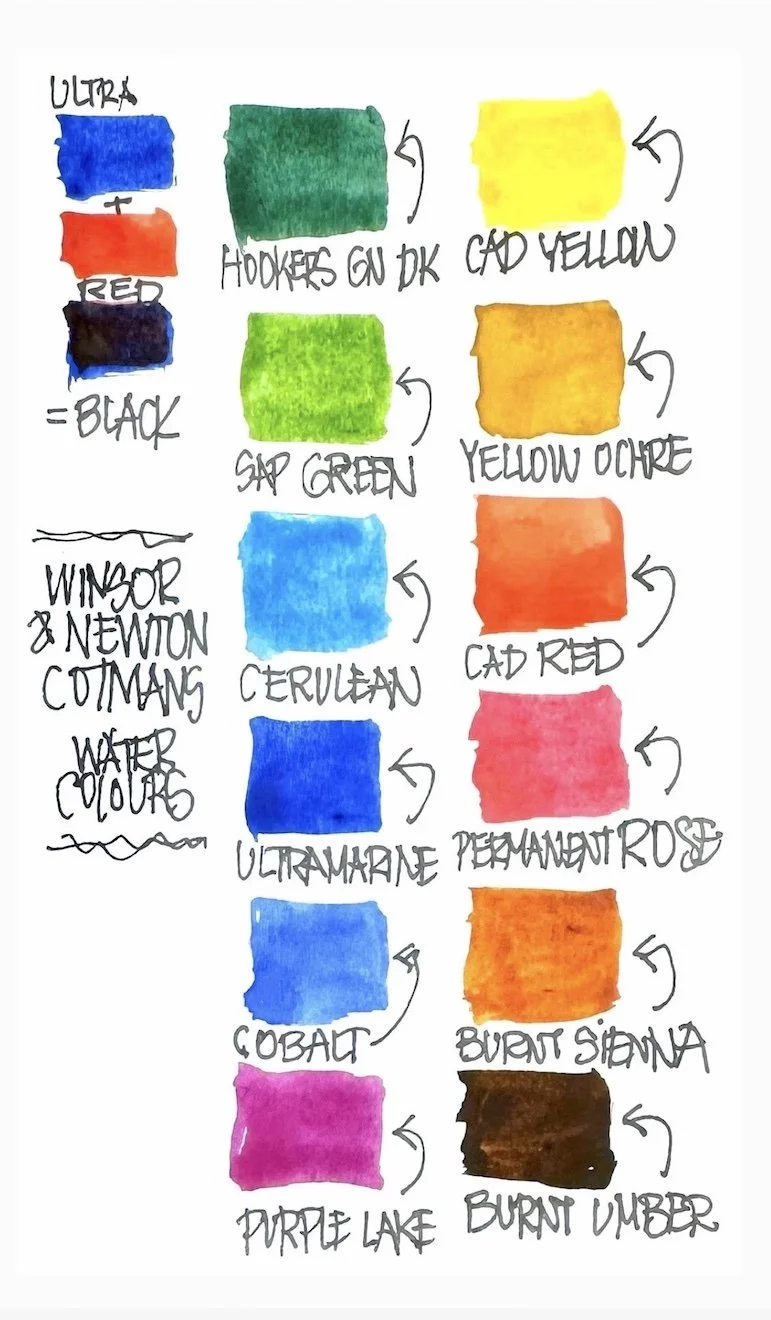 ULTRA
+
RED
= BLACK
WINSOR
& NEWTON
COTMANS
WATER
COLOURS
HOOKERS GN DK
SAP GREEN
CERULEAN
ULTRAMARINE
COBALT
PURPLE LAKE
CAD YELLOW
YELLOW OCHRE
CAD RED
PERMANENT ROSE
BURNT SIENNA
BURNT UMBER